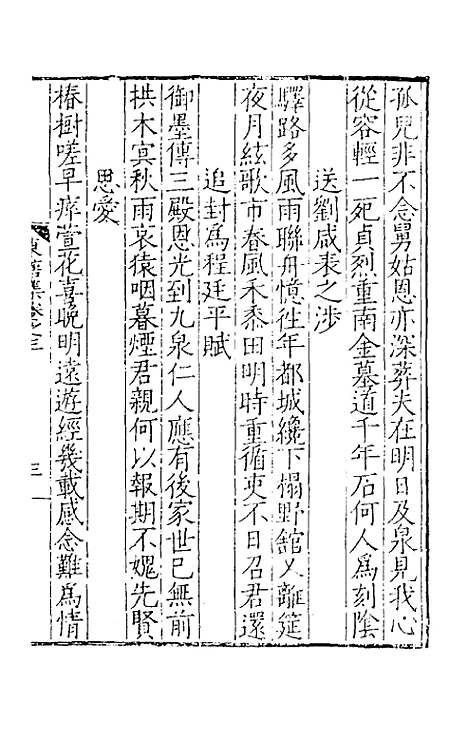 孤兒非不念舅姑恩亦深葬夫在明日及泉見我心
從容輕一死貞烈重南金墓道千年石何人爲刻陰
送劉咸表之涉
驛路多風雨聯舟憶往年都城纔下榻野舘又離筵
夜月絃歌市春風禾黍田明時重循吏不日召君還
追封爲程廷平賦
御墨傳三殿恩光到九泉仁人應有後家世已無前
拱木寘秋雨哀猿咽暮煙君親何以報期不媿先賢
思愛
椿樹嗟早瘁萱花喜晚明遠遊經幾載感念難爲情
三